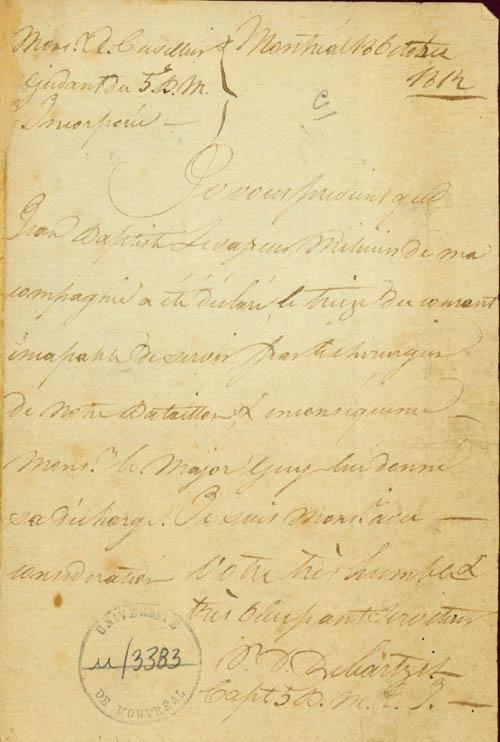 Mons.r D. Cuvillier
Ajudant du 5.e B. M.
Incorporée —
Montréal 18 Octobre
1812
Je vous previens que
Jean Baptiste Levapeur Milicien de ma
compagnie a été déclaré, le treize du courant
incapable de servir, par le chirurgien
de notre Bataillon, & inconséquence
Mons.r le Major Guy lui donné
sa décharge. Je suis Mons.r avec —
considération Votre très humble &
très Obéissant Serviteur
P. D. Debartzch
Capt 5 B. M. I. —
UNIVERSITÉ
11/3383
DE MONTRÉAL